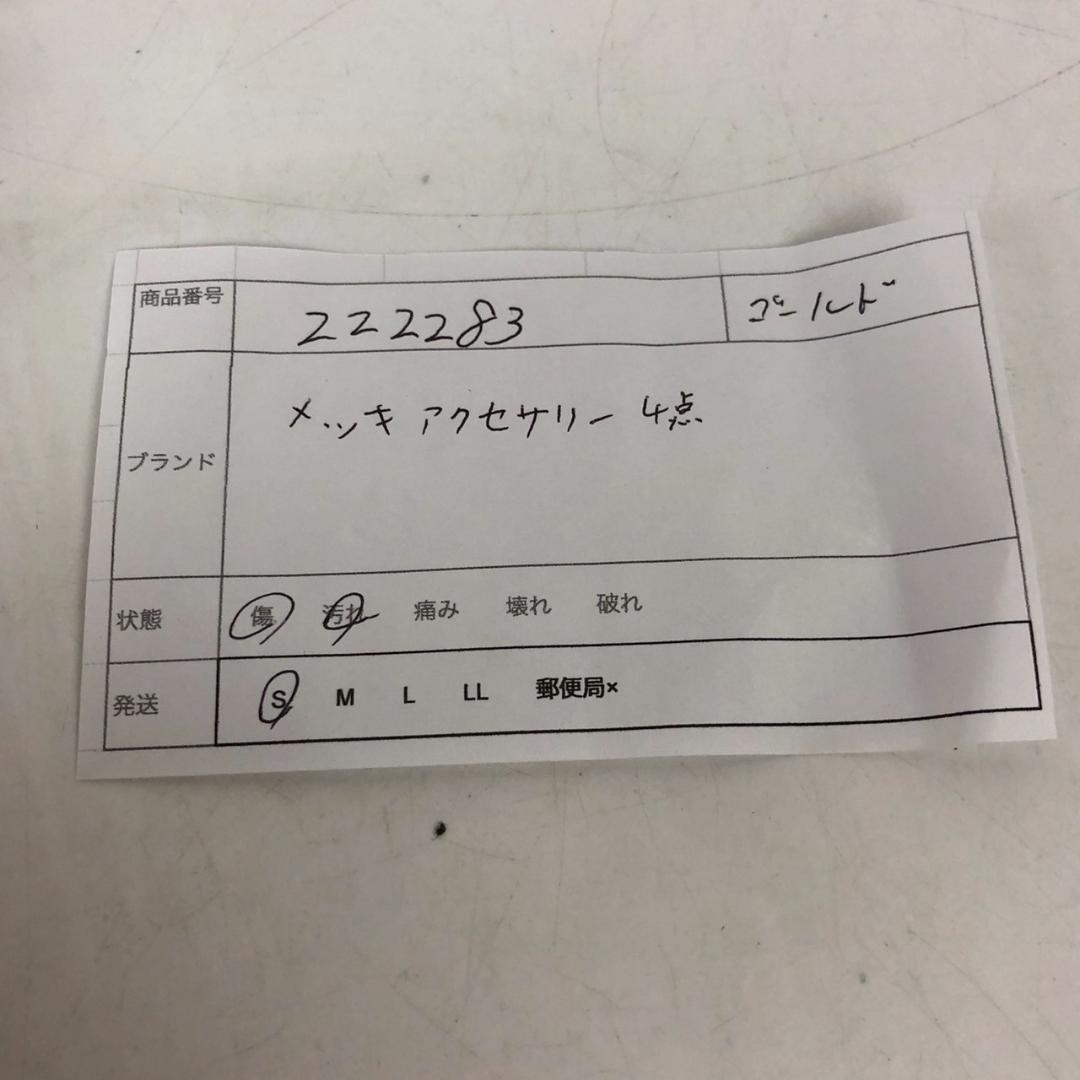 商品番号 222283 ゴールド
ブランド メッキ アクセサリー 4点
状態 傷 汚れ 痛み 壊れ 破れ
発送 S M L LL 郵便局×